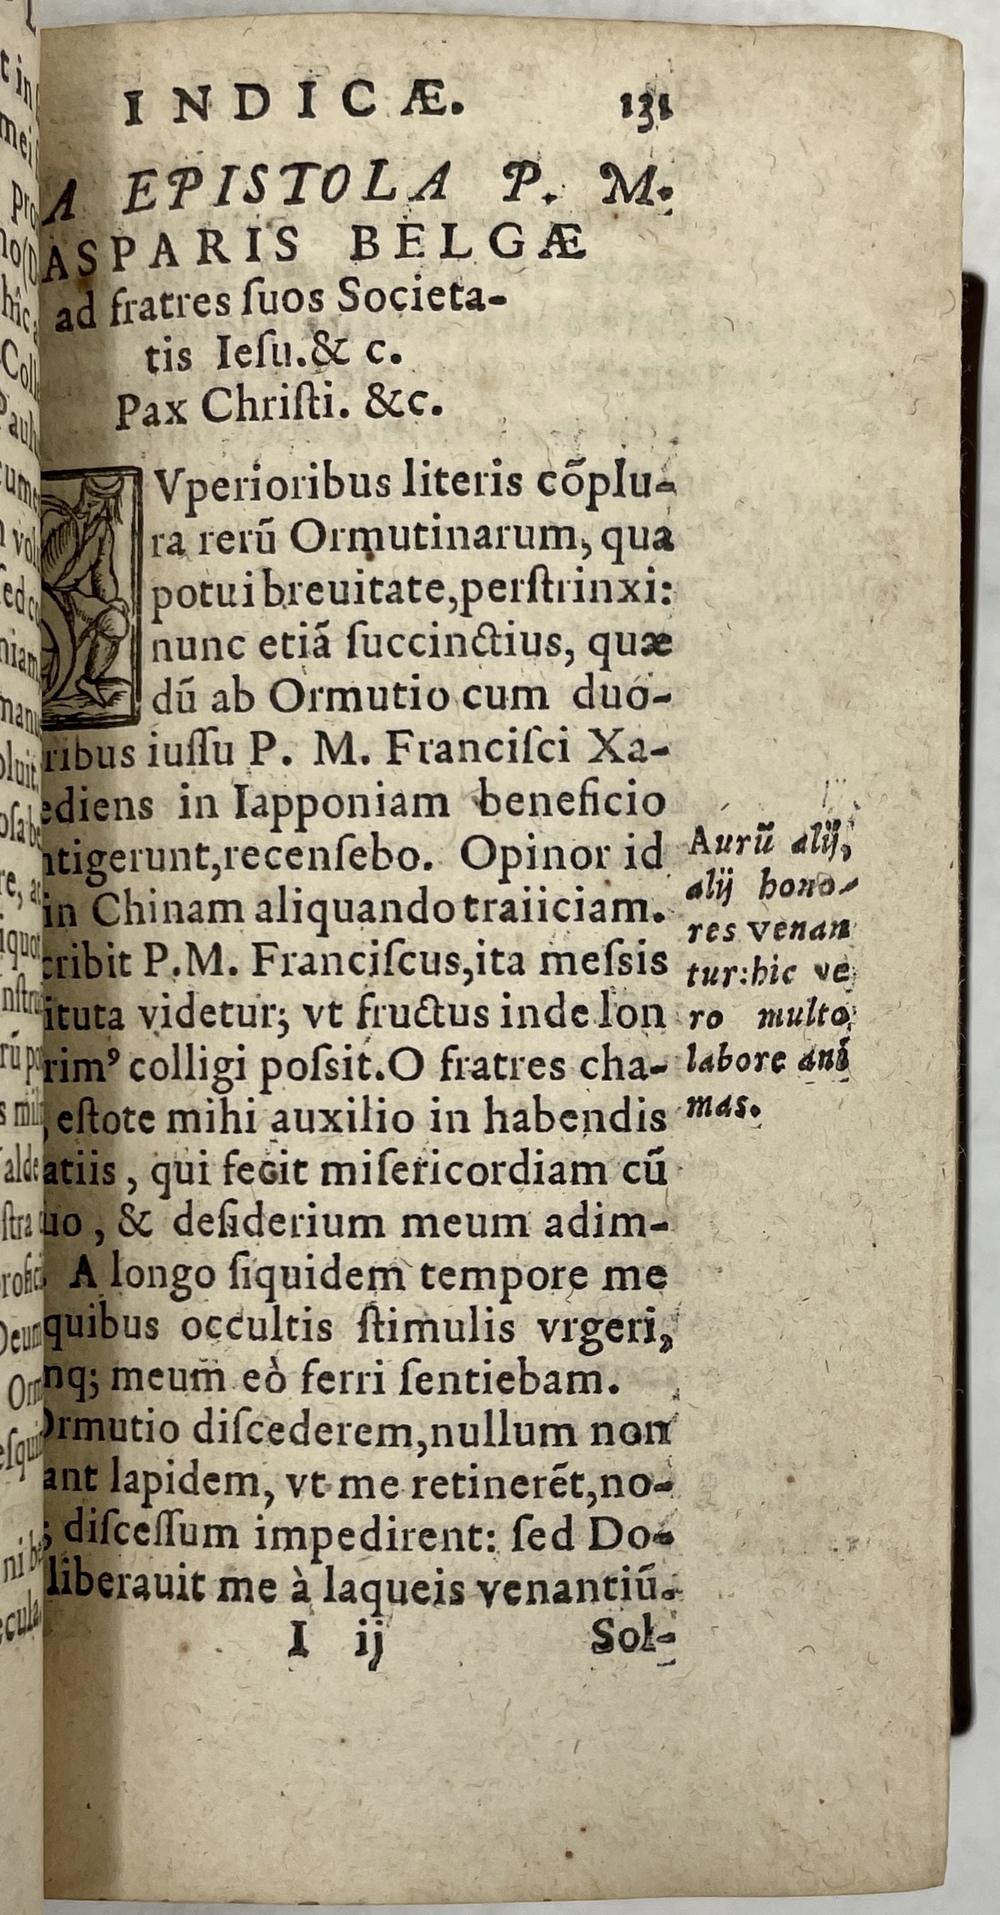 INDICÆ. 131
A EPISTOLA P. M.
ASPARIS BELGÆ
ad fratres ſuos Societa-
tis Ieſu.& c.
Pax Chriſti. &c.
Vperioribus literis cõplu-
ra rerũ Ormutinarum, qua
potui breuitate,perſtrinxi:
nunc etiã ſuccinctius, quæ
dũ ab Ormutio cum duo-
ribus iuſſu P. M. Franciſci Xa-
ediens in Iapponiam beneficio
ntigerunt,recenſebo. Opinor id
in Chinam aliquando traiiciam.
cribit P.M. Franciſcus,ita meſsis
ituta videtur; vt fructus inde lon
rimꝰ colligi poſsit.O fratres cha-
, eſtote mihi auxilio in habendis
atiis, qui fecit miſericordiam cũ
uo, & deſiderium meum adim-
. A longo ſiquidem tempore me
quibus occultis ſtimulis vrgeri,
nq; meum eò ferri ſentiebam.
Ormutio diſcederem,nullum non
ant lapidem, vt me retinerẽt,no-
; diſceſſum impedirent: ſed Do-
liberauit me à laqueis venantiũ.
I ij Sol-
Aurũ alij,
alij hono-
res venan
tur:hic ve
ro multo
labore ani
mas.